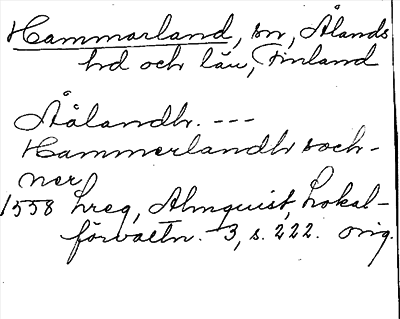 Hammarland, sn, Ålands
hd och län, Finland
Åålandh. ---
Hammerlandh soch-
ner
1558 hreg, Almquist, Lokal-
förvaltn. 3, s. 222. orig.